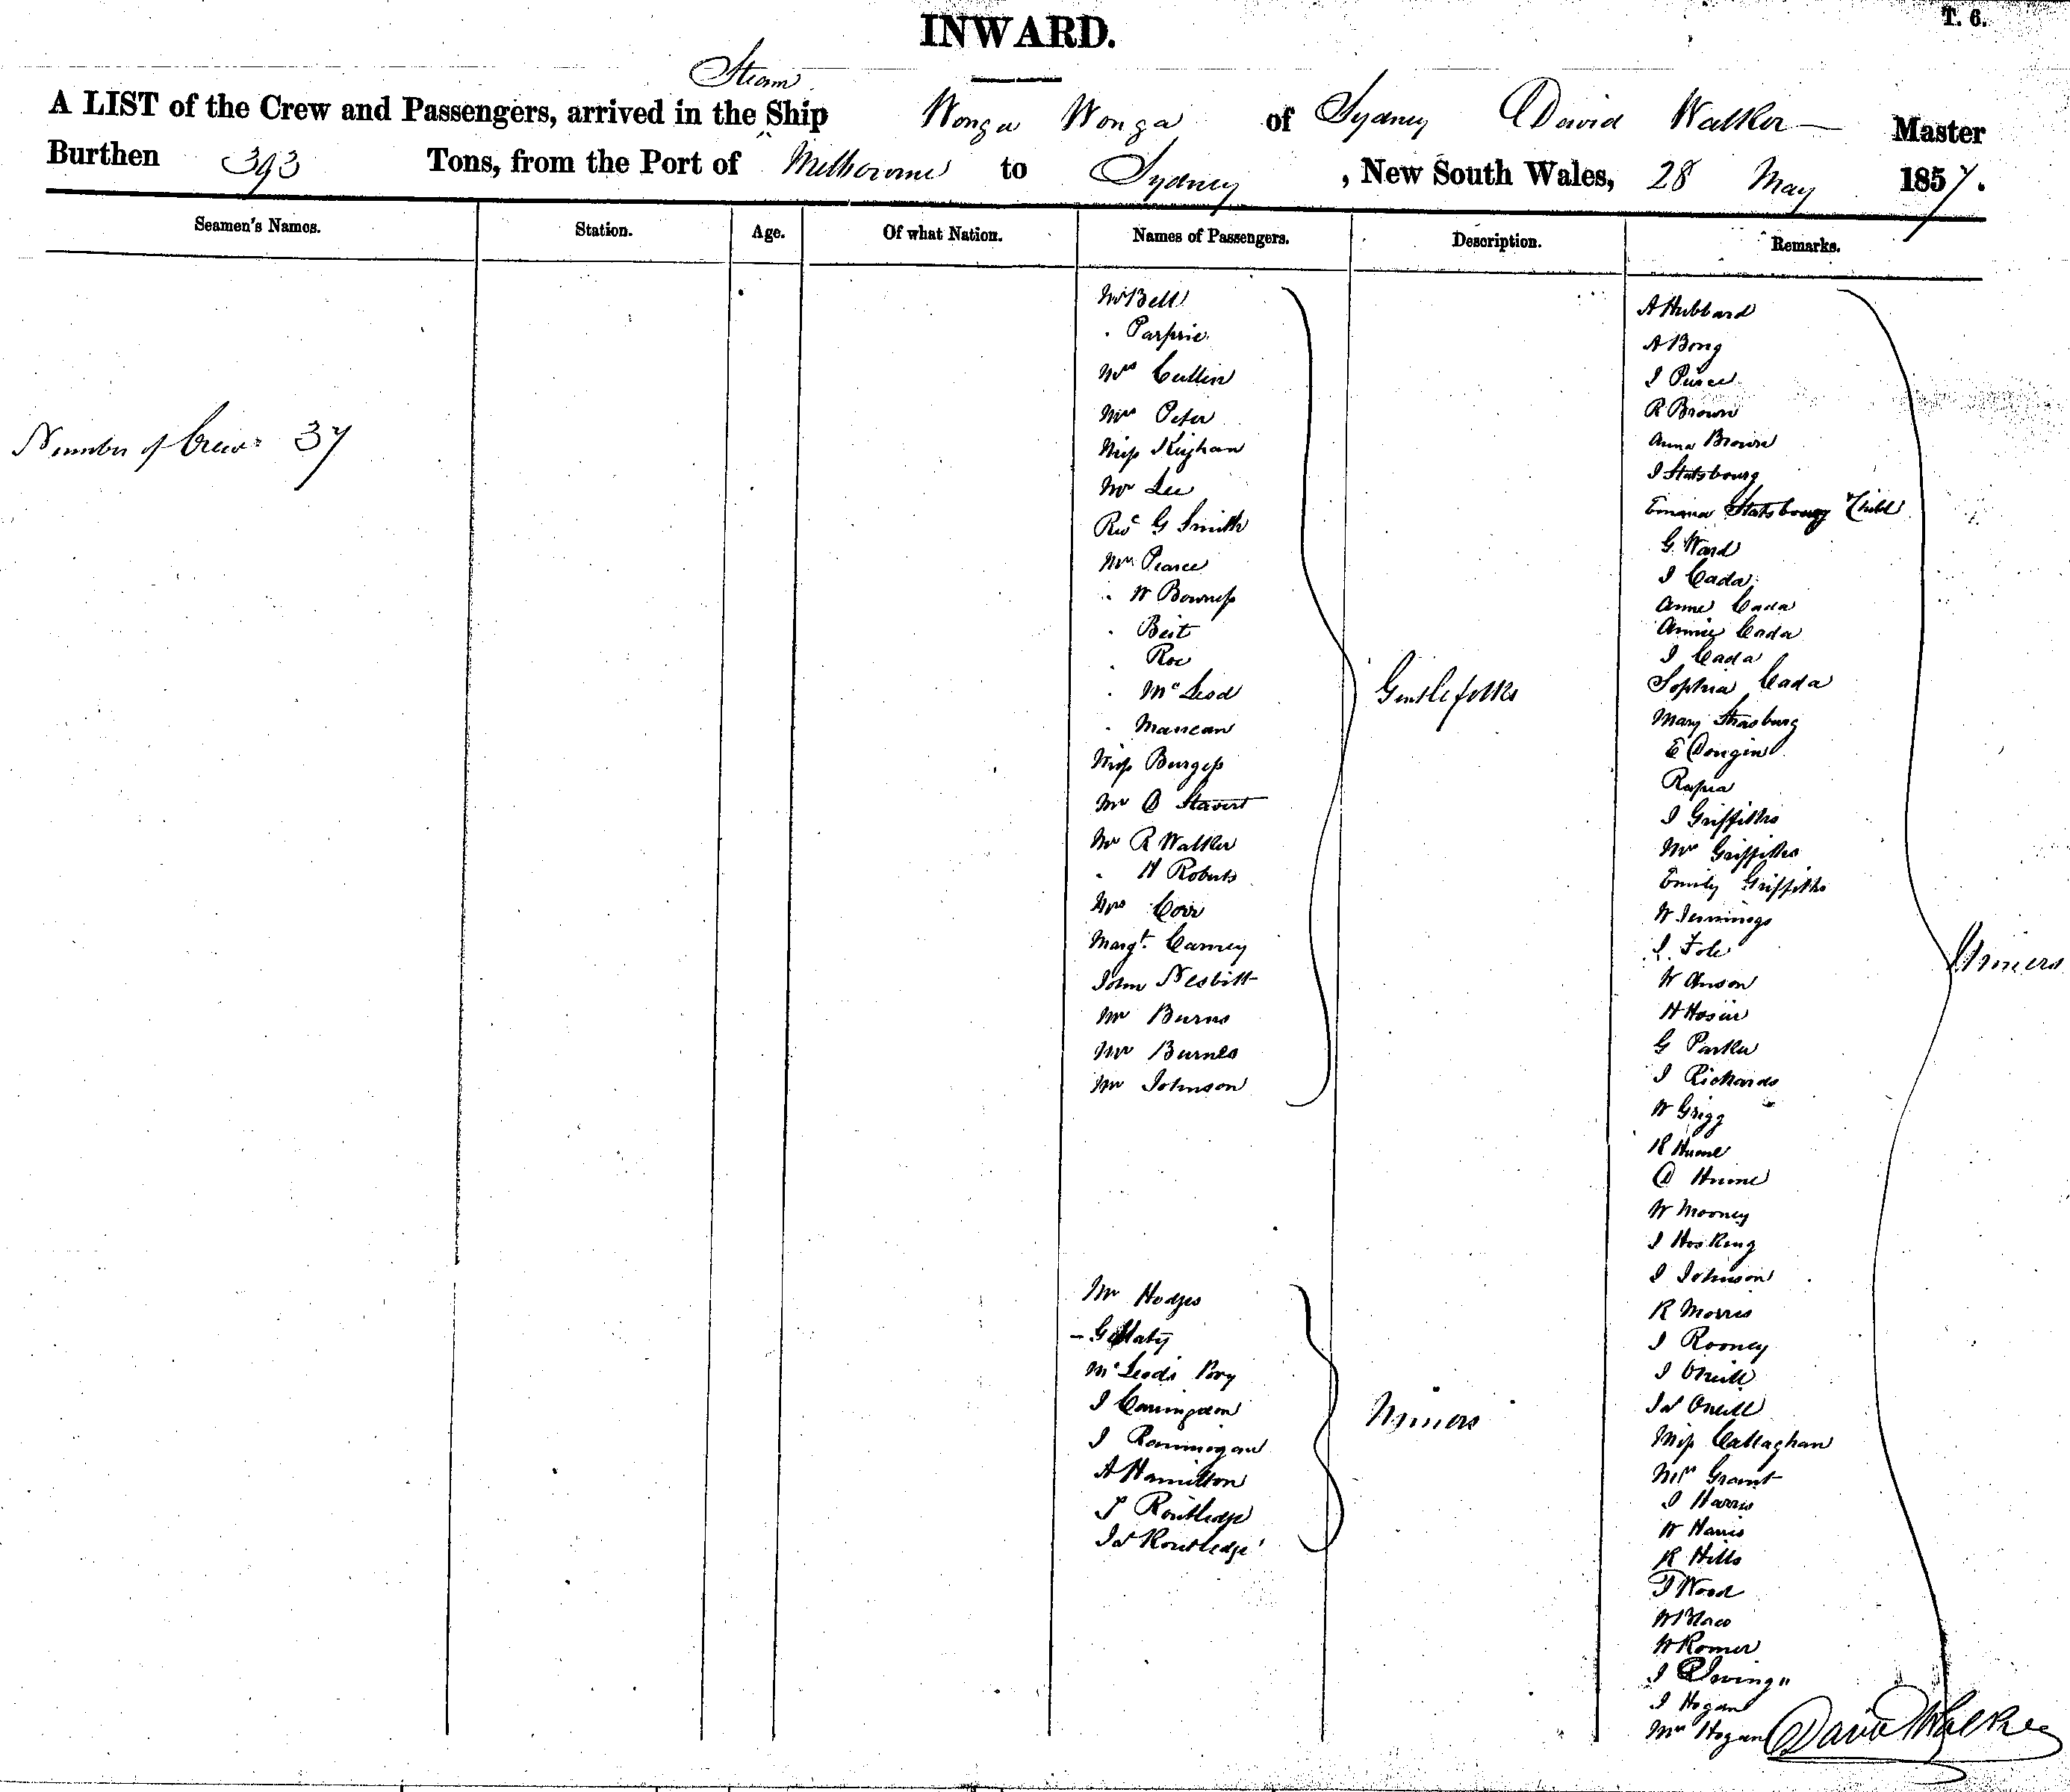 INWARD.
T. 6.
Steam
A LIST of the Crew and Passengers, arrived in the Ship Wonga Wonga of Sydney David Walker Master
Burthen 393 Tons, from the Port of Melbourne to Sydney, New South Wales, 28 May 1857.
Seamen's Names. Station. Age. Of what Nation. Names of Passengers. Description. Remarks.
Number of Crew 37
Mr Bell
Mrs Cullen
Mrs Peter
Miss Keighan
Mr Lee
Revd G Smith
Mr Pearce
" W Bowness
" Beit
" Roe
" McLeod
" Manean
Miss Burgess
Mr D Stavert
Mr R Walker
" H Roberts
Mrs Corr
Margt. Carney
John Nesbitt
Mr Burns
Mr Burnes
Mr Johnson
Gentlefolks
Mr Hodges
McLeods Boy
I Carringdon
I Ranningan
A Hamilton
J Routledge
Js Routledge
Miners
A Hubbard
A Bong
J Pierce
R Brown
Anna Brown
I Statsbourg
Emma Statsbourg & Child
G Ward
J Cada
Anne Cada
Annie Cada
J Cada
Sophia Cada
Mary Strasburg
E Dongin
Rapia
J Griffiths
Mr Griffiths
Emily Griffiths
W Jennings
J. Fole
W Anson
H Hosier
G Parker
J Richards
W Grigg
R Hume
D Hume
W Mooney
J Hosking
J Johnson
R Morris
J Rooney
J ONeill
Js ONeill
Miss Callaghan
Mrs Grant
J Harris
W Harris
R Hills
T Wood
W Romer
J Irving
J Hogan
Mrs Hogan
Miners
David Walker